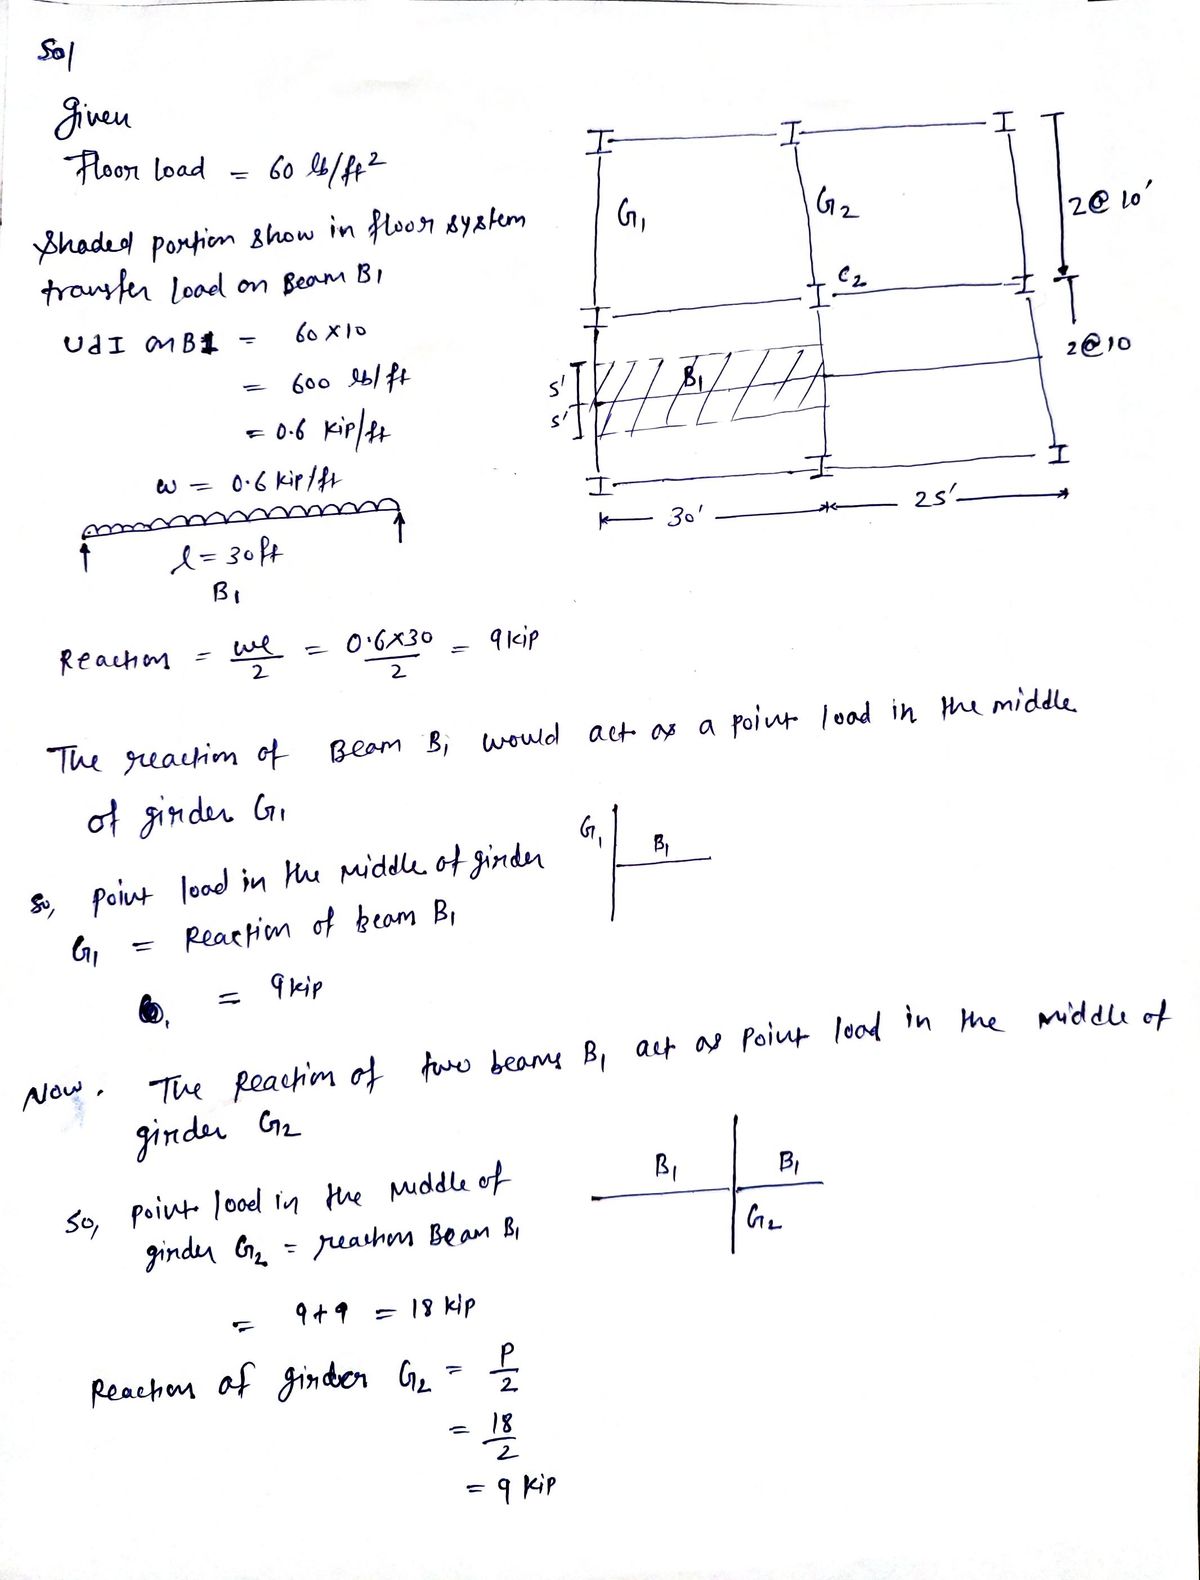 Sol
Given
Floor load = 60 lb/ft²
Shaded portion show in floor system
transfer load on Beam B1
Udl on B1 = 60 × 10
= 600 lb/ft
= 0.6 kip/ft
w = 0.6 kip/ft
l = 30 ft
B1
G1
G2
C2
B1
5'
5'
2@ 10'
2@10
30'
25'
Reaction = wl/2 = 0.6×30/2 = 9 kip
The reaction of Beam B1 would act as a point load in the middle
of girder G1
G1
B1
So, point load in the middle of girder
G1 = Reaction of beam B1
= 9 kip
Now. The Reaction of two beams B1 act as Point load in the middle of
girder G2
B1
B1
G2
So, point load in the middle of
girder G2 = reaction Beam B1
= 9+9 = 18 kip
Reaction of girder G2 = P/2
= 18/2
= 9 kip